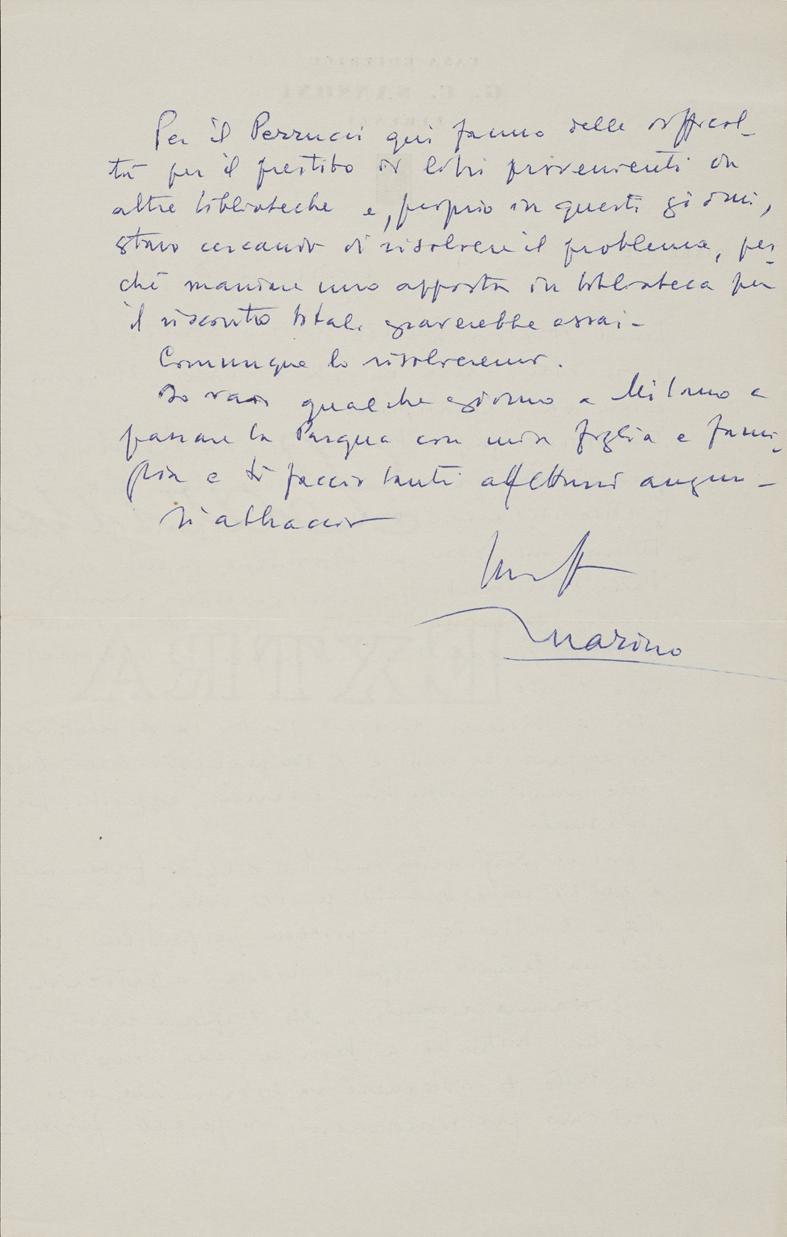 Per il Perrucci qui fanno delle difficol-
tà per il prestito di libri provenienti da
altre biblioteche e, proprio in questi giorni,
stavo cercando di risolvere il problema, per-
ché mandare uno apposta in biblioteca per
il riscontro total. graverebbe assai-
Comunque lo risolveremo.
Io vado qualche giorno a Milano a
passare la Pasqua con mia figlia e fami-
glia e ti faccio tanti affettuosi auguri-
Ti abbraccio
Marino
EXTRA